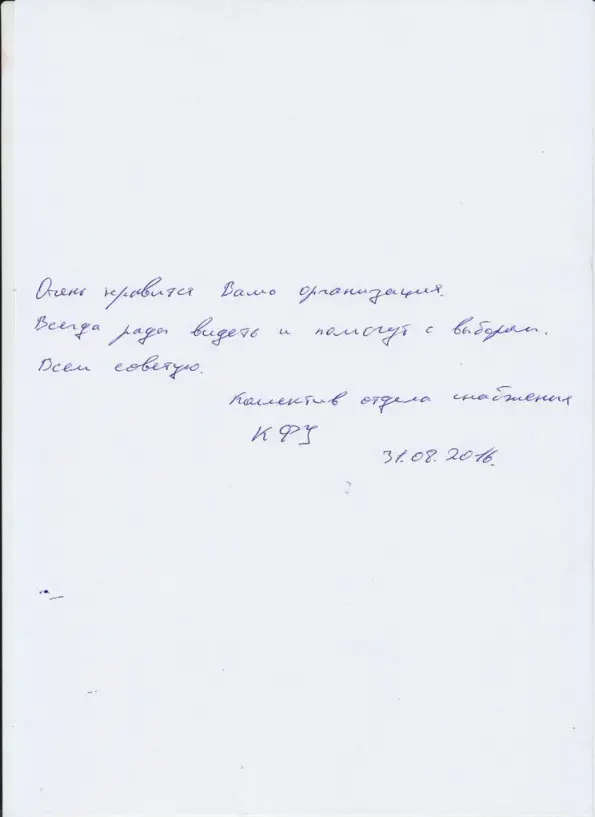 Очень нравится Ваша организация.
Всегда рады видеть и помогут с выбором.
Всем советую.
Коллектив отдела снабжения
КФУ
31.08.2016.